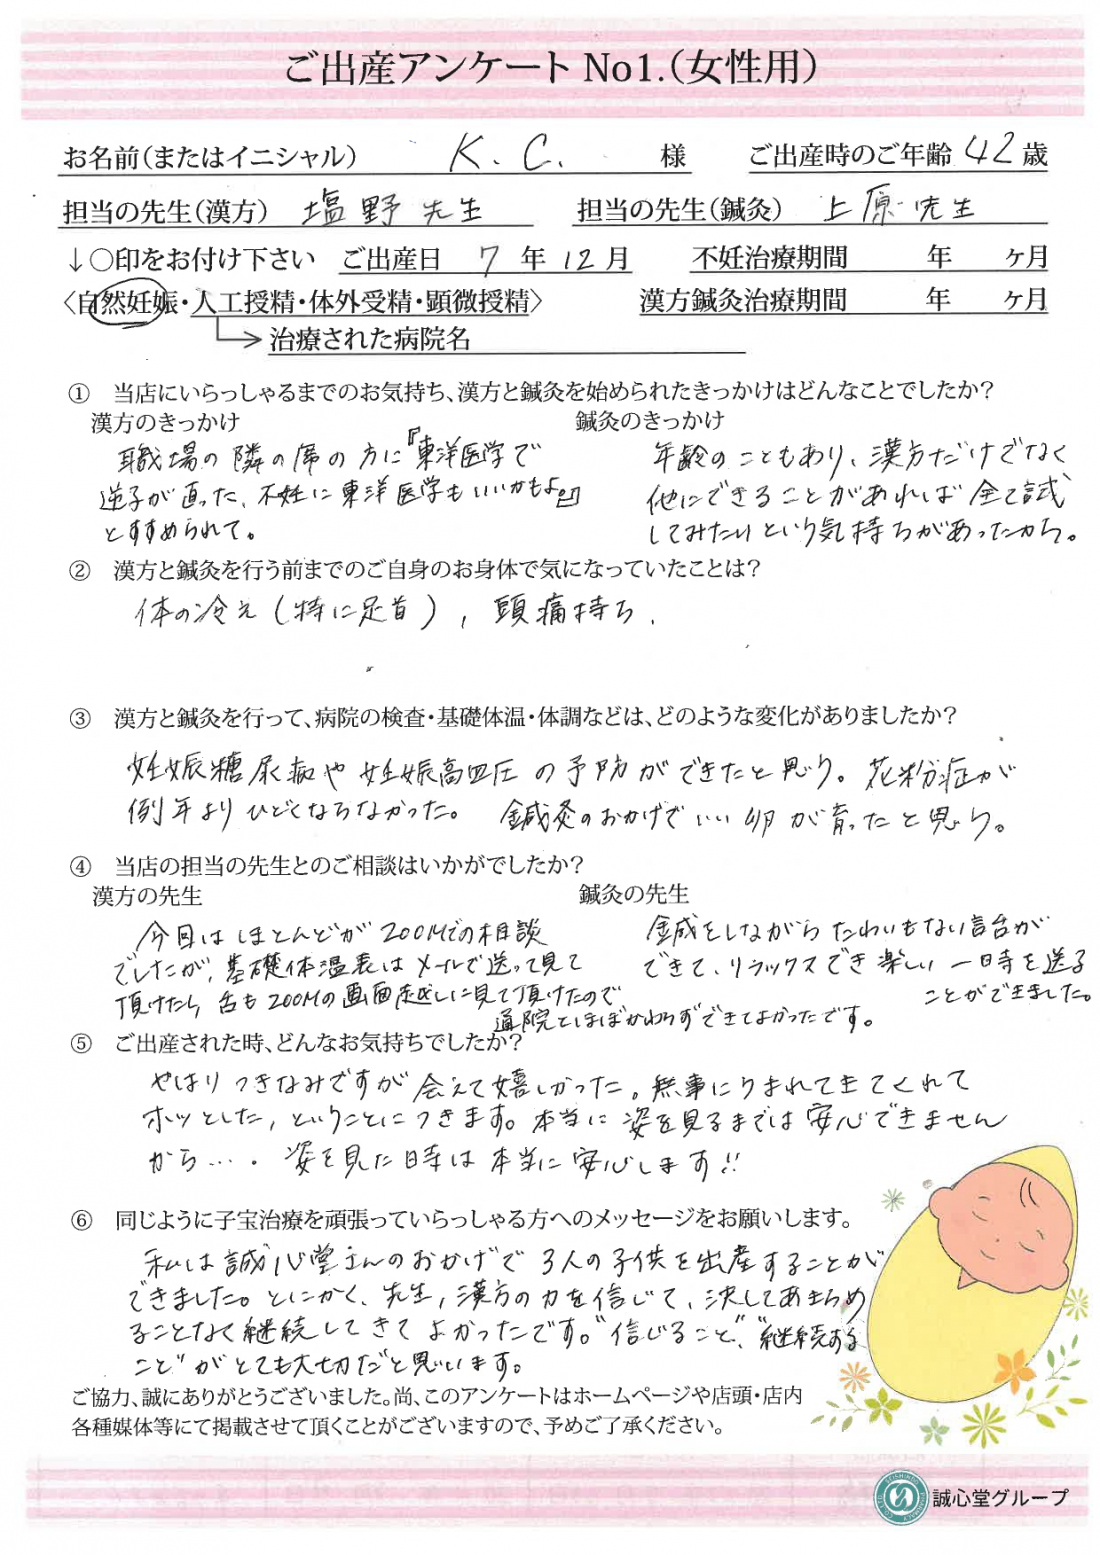 ご出産アンケート No1.（女性用）
お名前（またはイニシャル） K. C. 様 ご出産時のご年齢 42 歳
担当の先生（漢方） 塩野先生 担当の先生（鍼灸） 上原先生
↓○印をお付け下さい ご出産日 7 年 12 月 不妊治療期間 年 ヶ月
〈自然妊娠・人工授精・体外受精・顕微授精〉 漢方鍼灸治療期間 年 ヶ月
治療された病院名
① 当店にいらっしゃるまでのお気持ち、漢方と鍼灸を始められたきっかけはどんなことでしたか？
漢方のきっかけ
職場の隣の席の方に『東洋医学で
逆子が直った、不妊に東洋医学もいいかもよ。』
とすすめられて。
鍼灸のきっかけ
年齢のこともあり、漢方だけでなく
他にできることがあれば全て試
してみたいという気持ちがあったから。
② 漢方と鍼灸を行う前までのご自身のお身体で気になっていたことは？
体の冷え（特に足首）, 頭痛持ち.
③ 漢方と鍼灸を行って、病院の検査・基礎体温・体調などは、どのような変化がありましたか？
妊娠糖尿病や妊娠高血圧の予防ができたと思う。花粉症が
例年よりひどくならなかった。 鍼灸のおかげでいい卵が育ったと思う。
④ 当店の担当の先生とのご相談はいかがでしたか？
漢方の先生
今回はほとんどがZOOMでの相談
でしたが、基礎体温表はメールで送って見て
頂けたし、舌もZOOMの画面越しに見て頂けたので
通院とほぼかわらずできてよかったです。
鍼灸の先生
鍼をしながらたわいもない話が
できて、リラックスでき楽しい一時を送る
ことができました。
⑤ ご出産された時、どんなお気持ちでしたか？
やはりつきなみですが会えて嬉しかった。無事にうまれてきてくれて
ホッとした, ということにつきます。本当に姿を見るまでは安心できません
から…. 姿を見た時は本当に安心します!!
⑥ 同じように子宝治療を頑張っていらっしゃる方へのメッセージをお願いします。
私は誠心堂さんのおかげで3人の子供を出産することが
できました。とにかく、先生, 漢方の力を信じて、決してあきらめ
ることなく継続してきてよかったです。"信じること", "継続する
こと"がとても大切だと思います。
ご協力、誠にありがとうございました。尚、このアンケートはホームページや店頭・店内
各種媒体等にて掲載させて頂くことがございますので、予めご了承ください。
誠心堂グループ